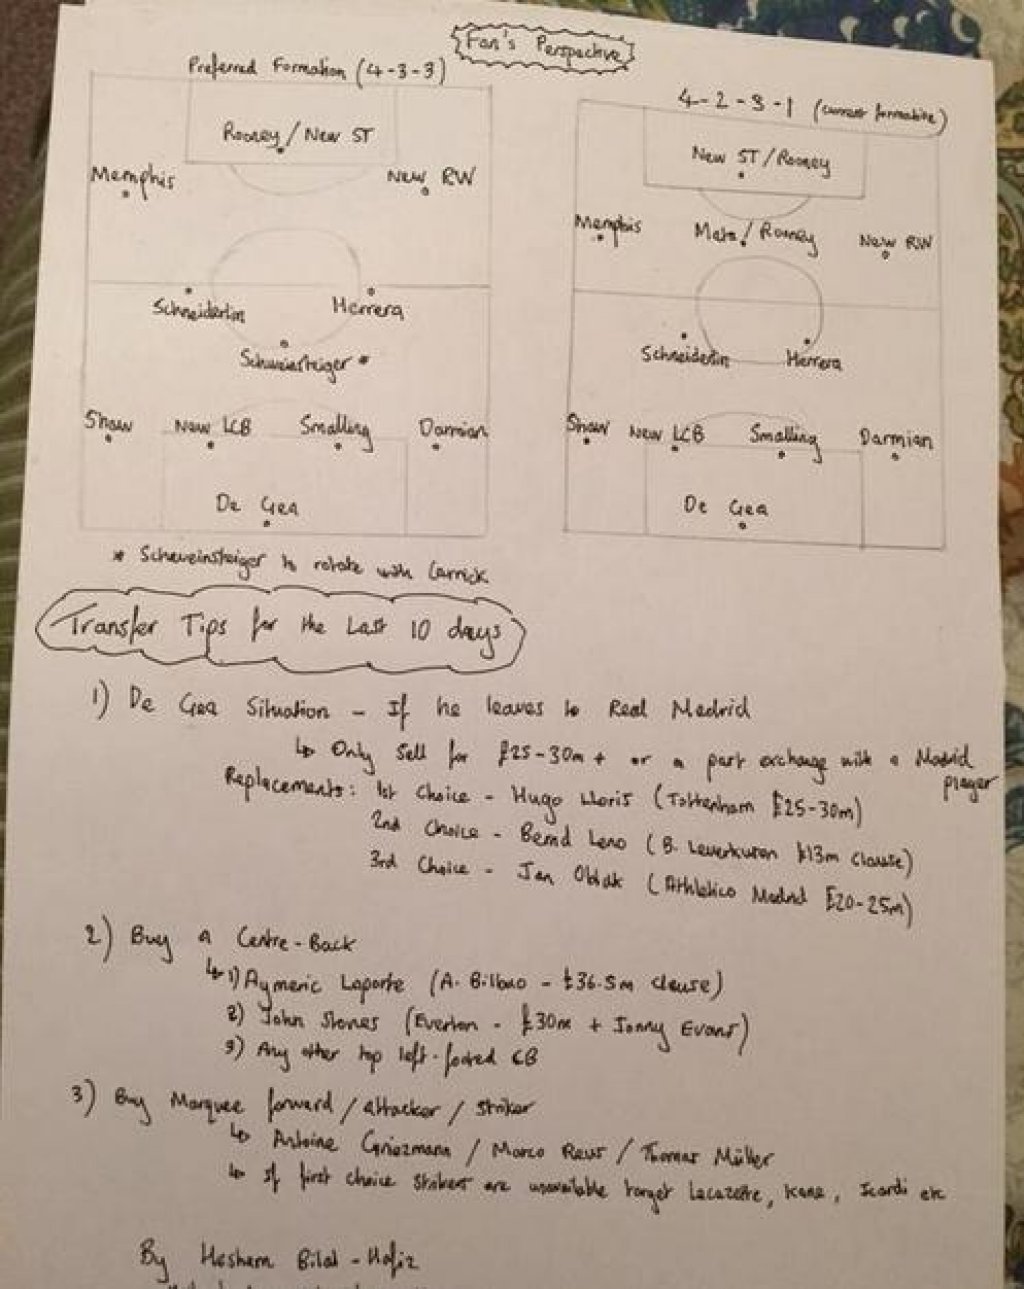 Fan's Perspective
Preferred Formation (4-3-3)
Rooney / New ST
Memphis
New RW
Schneiderlin
Herrera
Schweinsteiger *
Shaw
New LCB
Smalling
Darmian
De Gea
* Schweinsteiger to rotate with Carrick
4-2-3-1 (current formation)
New ST / Rooney
Memphis
Mata / Rooney
New RW
Schneiderlin
Herrera
Shaw
New LCB
Smalling
Darmian
De Gea
Transfer Tips for the Last 10 days
1) De Gea Situation - If he leaves to Real Madrid
↳ Only sell for £25-30m + or a part exchange with a Madrid
player
Replacements: 1st Choice - Hugo Lloris (Tottenham £25-30m)
2nd Choice - Bernd Leno (B. Leverkusen £13m clause)
3rd Choice - Jan Oblak (Athletico Madrid £20-25m)
2) Buy a Centre-Back
↳ 1) Aymeric Laporte (A. Bilbao - £36.5m clause)
2) John Stones (Everton - £30m + Jonny Evans)
3) Any other top left-footed CB
3) Buy Marquee forward / attacker / striker
↳ Antoine Griezmann / Marco Reus / Thomas Müller
↳ If first choice strikers are unavailable target Lacazette, Kane, Icardi etc
By Hesham Bilal-Hafiz